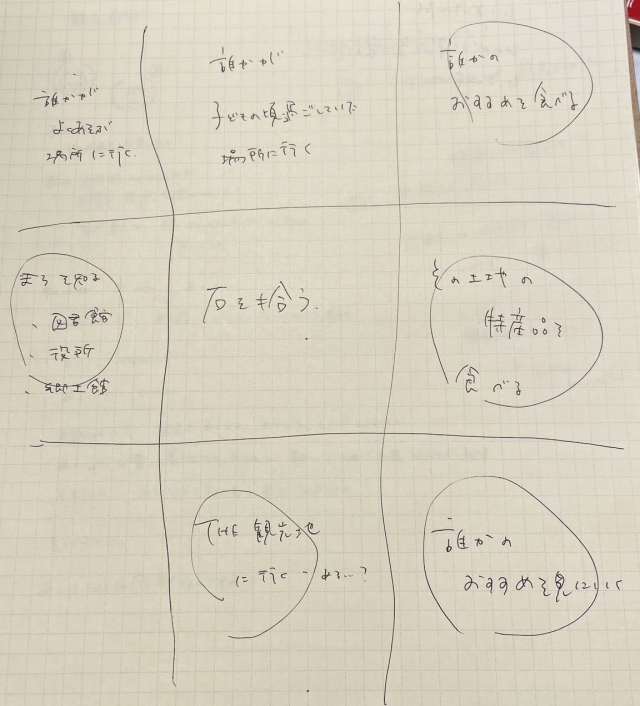 誰かが
よくあそぶ
場所に行く
誰かが
子どもの頃過ごしていた
場所に行く
誰かの
おすすめを食べる
まちを知る
、図書館
、役所
、郷土館
石を拾う
その土地の
特産品を
食べる
THE 観光地
に行く
ある…?
誰かの
おすすめを見にいく